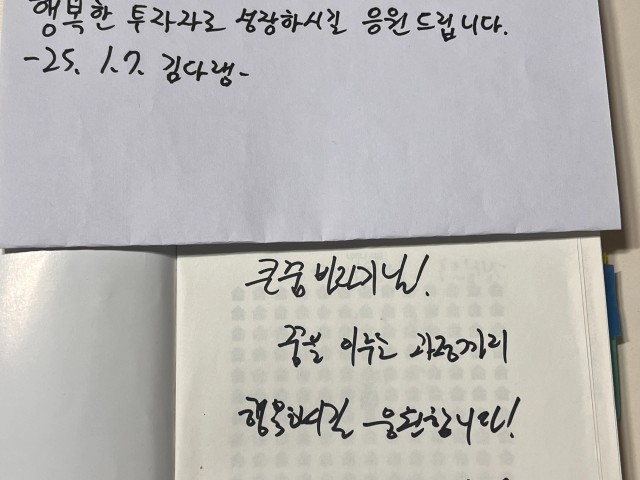 행복한 투자자로 성장하시길 응원드립니다.
-25. 1.7. 김다랭-
큰꿈 바라기님!
꿈을 이루는 과정까지
행복하시길 응원합니다!